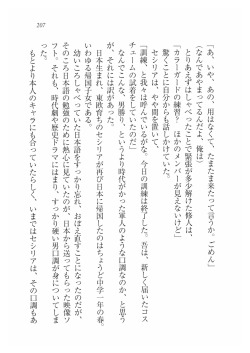 207
「あ、いや、あの、用はなくて、たまたま来たって言うか。ごめん」
(なんであやまってるんだよ、俺は)
とりあえずはしゃべったことで緊張が多少解けた修人は、
「カラーガードの練習? ほかのメンバーが見えないけど」
驚くことに自分からも話しかけていた。
セシリアは、やや間を置いて、
「訓練、と我々は呼んでいるがな、今日の訓練は終了した。吾は、新しく届いたコス
チュームの試着をしていたのだ」
なんでこんな、男勝り、というより時代がかった軍人のような口調なのか、と思う
が、それには訳があった。
日本生まれ、東欧育ちのセシリアが再び日本に帰国したのはちょうど中学一年の春。
いわゆる帰国子女である。
幼いころしゃべっていた日本語をすっかり忘れ、おぼえ直すことになったのだが、
そのころ日本語の勉強のために熱心に見ていたのが、日本から送ってもらった映像ソ
フト。それも、時代劇や歴史ドラマにはまり、すっかり硬い男口調が身についてしま
った。
もとより本人のキャラにも合っていたらしく、いまではセシリアは、その口調もあ